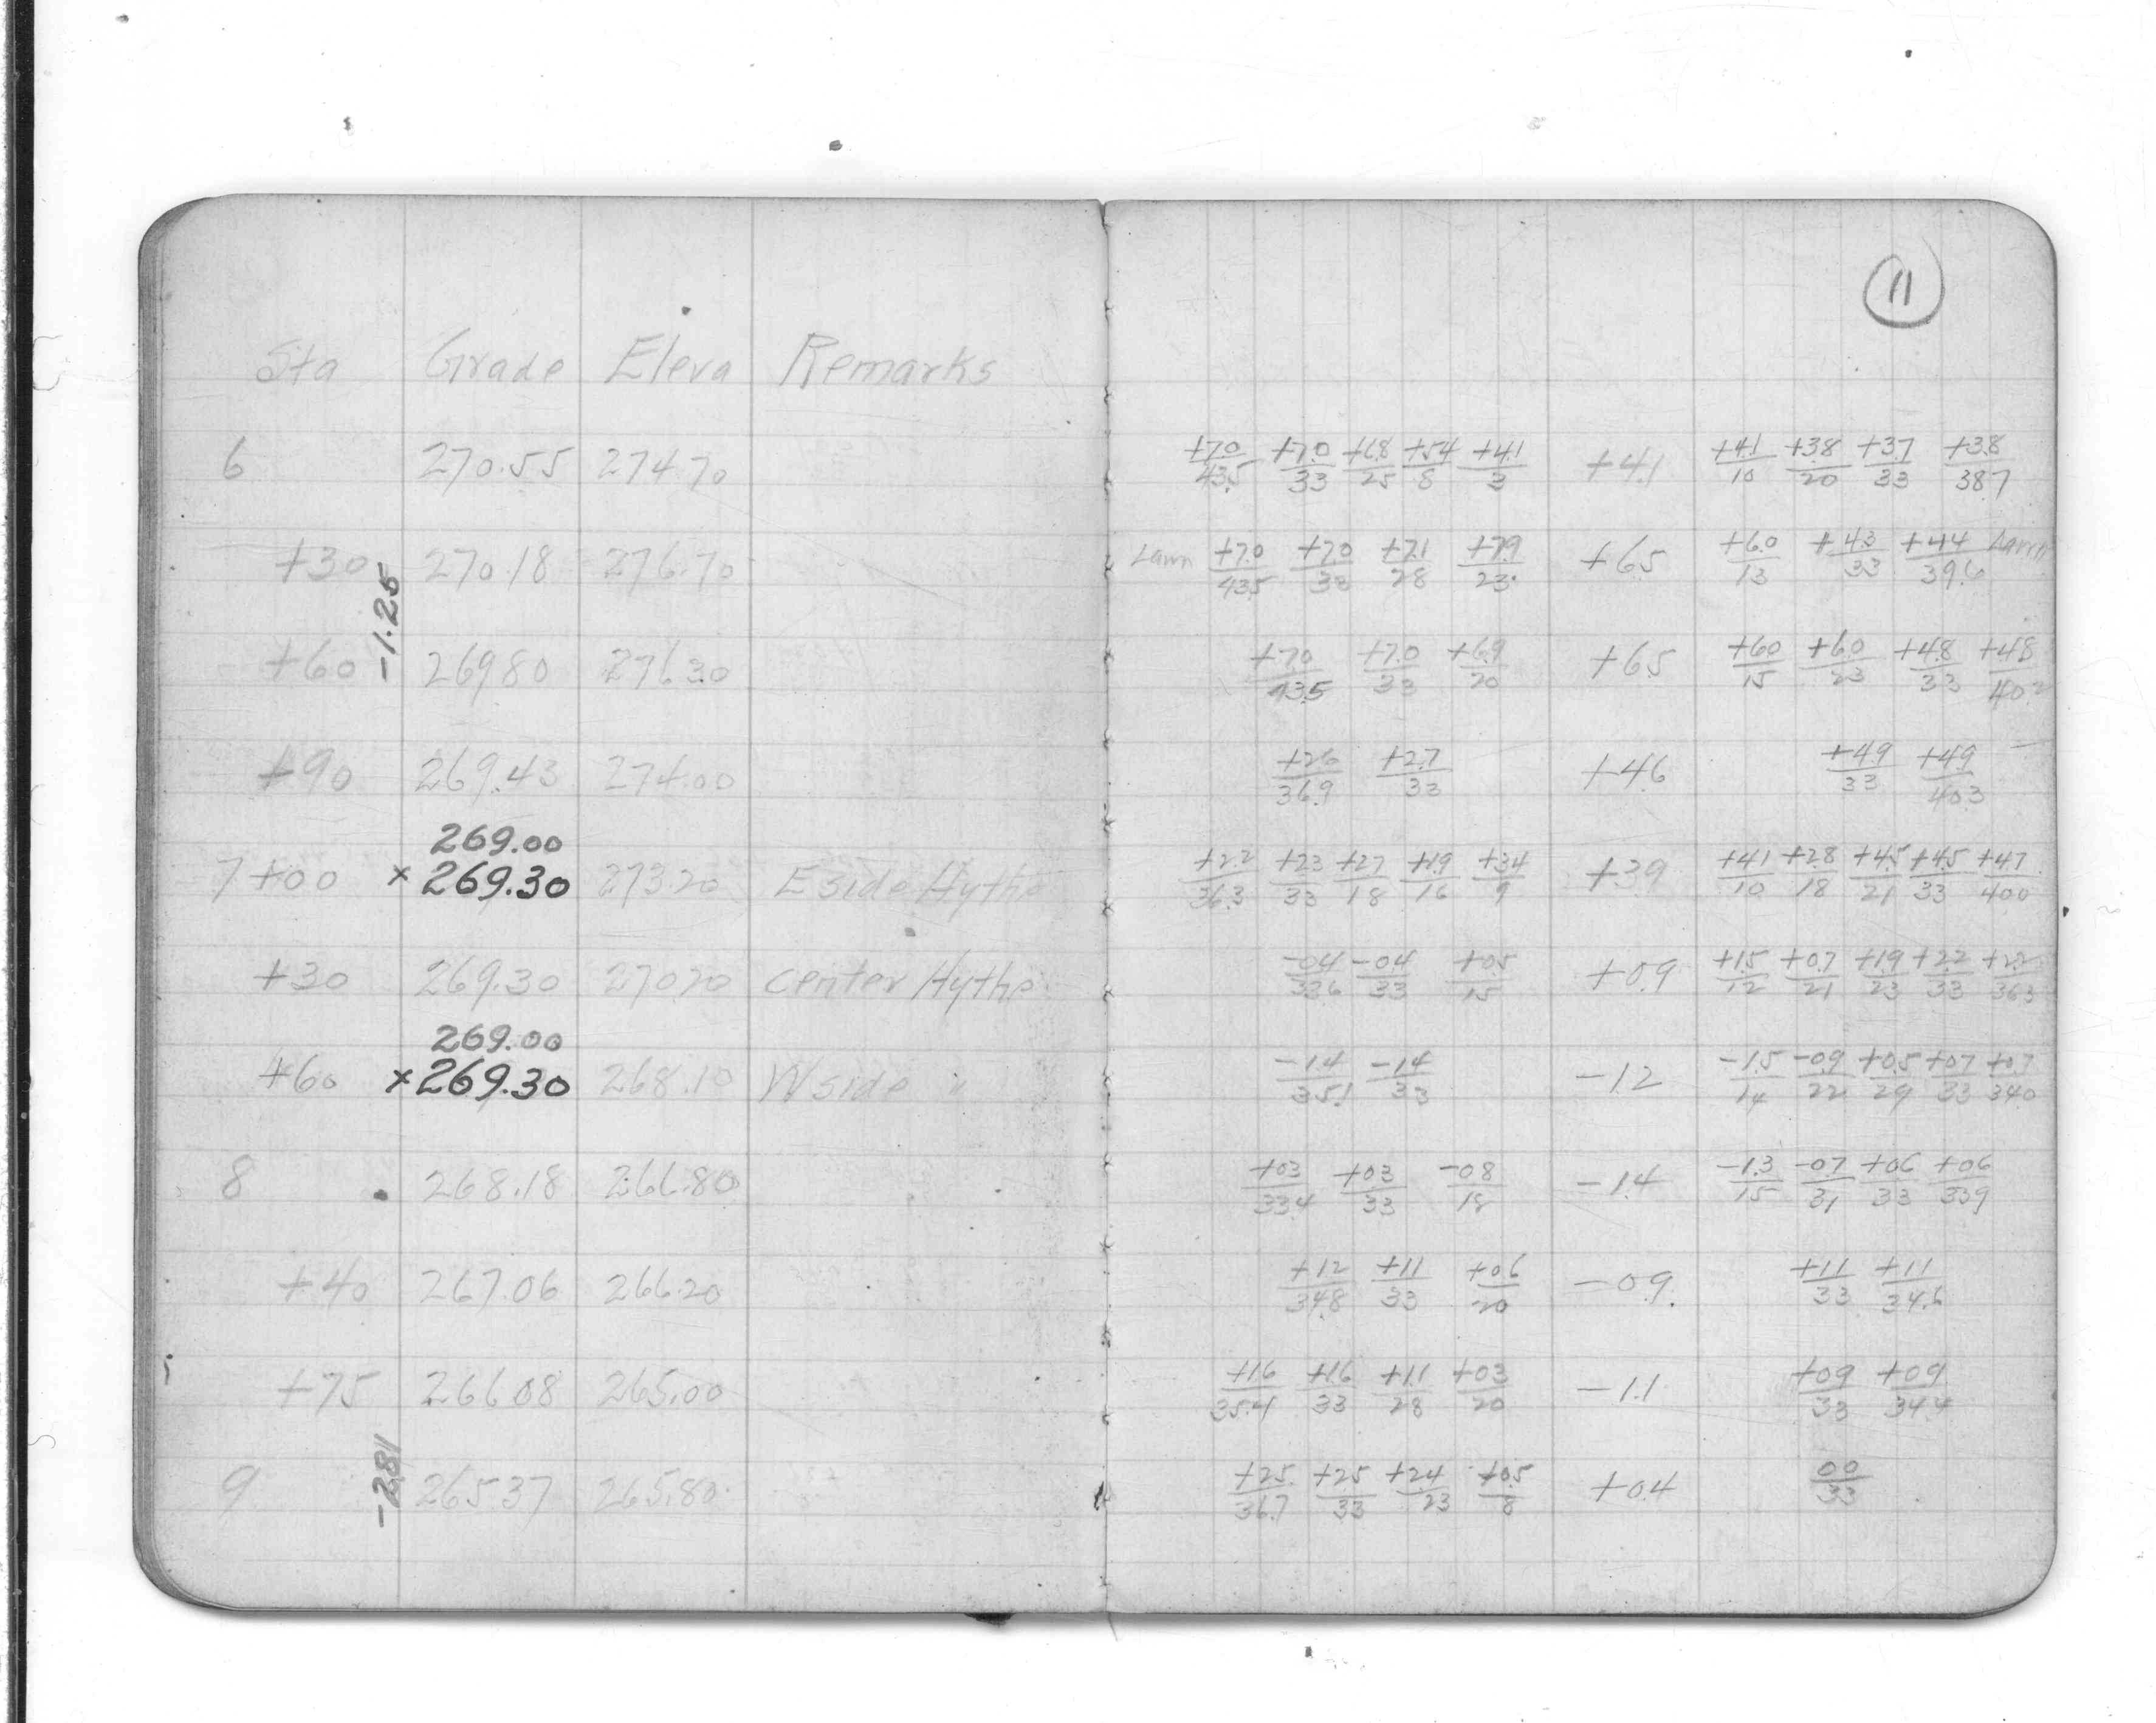 11
Sta Grade Eleva Remarks
6 270.55 274.70 +7.0/43.5 +7.0/33 +6.8/25 +5.4/8 +4.1/3 +4.1 +4.1/10 +3.8/20 +3.7/33 +3.8/38.7
+30 270.18 276.70 Lawn +7.0/43.5 +7.0/33 +7.1/28 +7.9/23 +6.5 +6.0/13 +4.3/33 +4.4/39.6 Lawn
-1.25
+60 269.80 276.30 +7.0/43.5 +7.0/33 +6.9/20 +6.5 +6.0/15 +6.0/23 +4.8/33 +4.8/40.2
+90 269.43 274.00 +2.6/36.9 +2.7/33 +4.6 +4.9/33 +4.9/40.3
269.00
7+00 x 269.30 273.20 E side Hythe +2.2/36.3 +2.3/33 +2.7/18 +1.9/16 +3.4/9 +3.9 +4.1/10 +2.8/18 +4.5/21 +4.5/33 +4.7/40.0
+30 269.30 270.20 center Hythe -0.4/33.6 -0.4/33 +0.5/15 +0.9 +1.5/12 +0.7/21 +1.9/23 +2.2/33 +2.2/36.3
269.00
+60 x 269.30 268.10 W side " -1.4/35.1 -1.4/33 -1.2 -1.5/14 -0.9/22 +0.5/29 +0.7/33 +0.7/34.0
8 268.18 266.80 +0.3/33.4 +0.3/33 -0.8/18 -1.4 -1.3/15 -0.7/31 +0.6/33 +0.6/33.9
+40 267.06 266.20 +1.2/34.8 +1.1/33 +0.6/20 -0.9 +1.1/33 +1.1/34.6
+75 266.08 265.00 +1.6/35.4 +1.6/33 +1.1/28 +0.3/20 -1.1 +0.9/33 +0.9/34.4
-2.81
9 265.37 265.80 +2.5/36.7 +2.5/33 +2.4/23 +0.5/8 +0.4 0.0/33